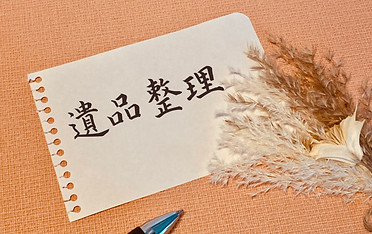 遺品整理